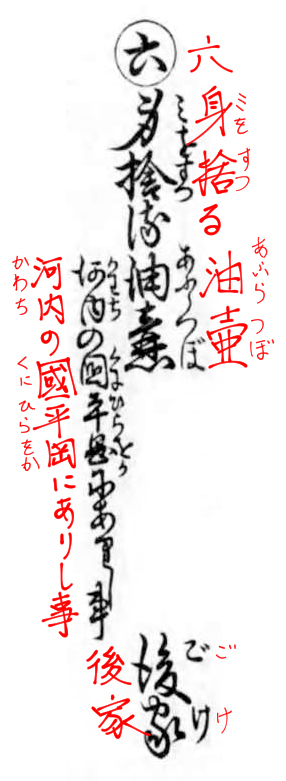 六 六
身捨る油壷 みをすつ あぶらつぼ
身捨る油壺 みをすつ あぶらつぼ
河内の國平岡にありし事 かわち くにひらをか
河内の国平岡にありし事 かわち くにひらをか
後家 ごけ
後家 ごけ